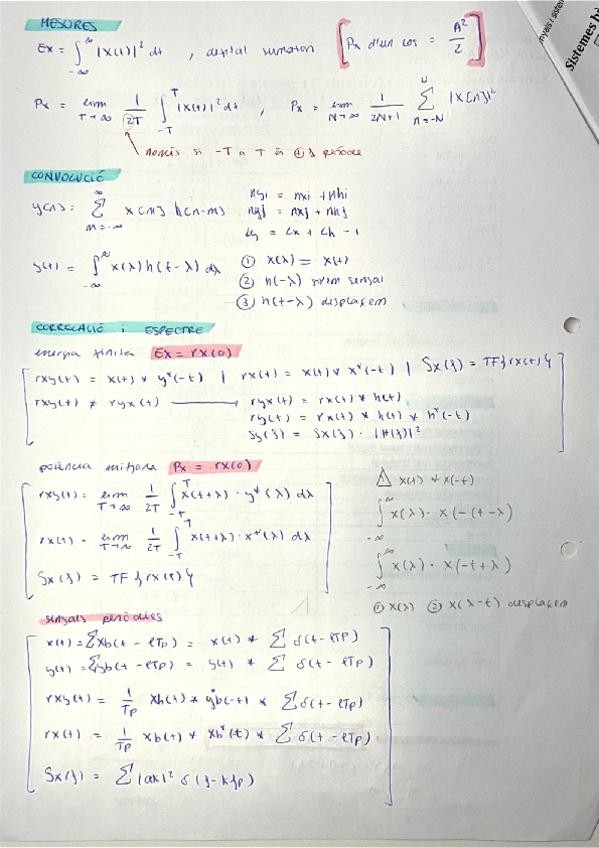 MESURES
Ex = ∫_{-∞}^{∞} |x(t)|² dt , digital sumatori [Px d'un cos = A²/2]
Px = lim_{T→∞} 1/2T ∫_{-T}^{T} |x(t)|² dt , Px = lim_{N→∞} 1/2N+1 Σ_{n=-N}^{N} |x[n]|²
només si -T a T és ① període
CONVOLUCIÓ
y[n] = Σ_{m=-∞}^{∞} x[m] h[n-m]
nyi = nxi + nhi
nyf = nxf + nhf
Ly = Lx + Lh - 1
y(t) = ∫_{-∞}^{∞} x(λ) h(t-λ) dλ
① x(λ) = x(t)
② h(-λ) girem senyal
③ h(t-λ) desplaçem
CORRELACIÓ i ESPECTRE
energia finita Ex = rx(0)
rxy(t) = x(t) * y*(-t) | rx(t) = x(t) * x*(-t) | Sx(f) = TF{rx(t)}
rxy(t) ≠ ryx(t) → ryx(t) = rx(t) * h(t)
ry(t) = rx(t) * h(t) * h*(-t)
Sy(f) = Sx(f) · |H(f)|²
potència mitjana Px = rx(0)
rxy(t) = lim_{T→∞} 1/2T ∫_{-T}^{T} x(t+λ) · y*(λ) dλ
rx(t) = lim_{T→∞} 1/2T ∫_{-T}^{T} x(t+λ) · x*(λ) dλ
Sx(f) = TF{rx(t)}
⚠ x(t) * x(-t)
∫_{-∞}^{∞} x(λ) · x(-(t-λ)
∫_{-∞}^{∞} x(λ) · x(-t+λ)
① x(λ) ② x(λ-t) desplaçem
senyals periòdics
x(t) = Σxb(t - lTp) = x(t) * Σ δ(t - lTp)
y(t) = Σyb(t - lTp) = y(t) * Σ δ(t - lTp)
rxy(t) = 1/Tp xb(t) * y*b(-t) * Σ δ(t - lTp)
rx(t) = 1/Tp xb(t) * xb*(t) * Σ δ(t - lTp)
Sx(f) = Σ |ak|² δ(f - kfp)